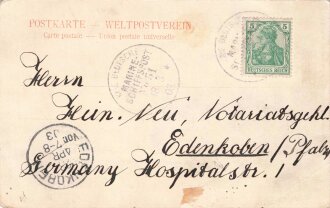 POSTKARTE – WELTPOSTVEREIN
Carte postale – Union postale universelle
5
DEUTSCHES REICH
MARINE-
SCHIFFSPOST
Herrn
Hein. Neu, Notariatsgehl.
Edenkoben /Pfalz
Germany Hospitalstr. 1
EDENKOBEN
APR
VOR. 7-8
03